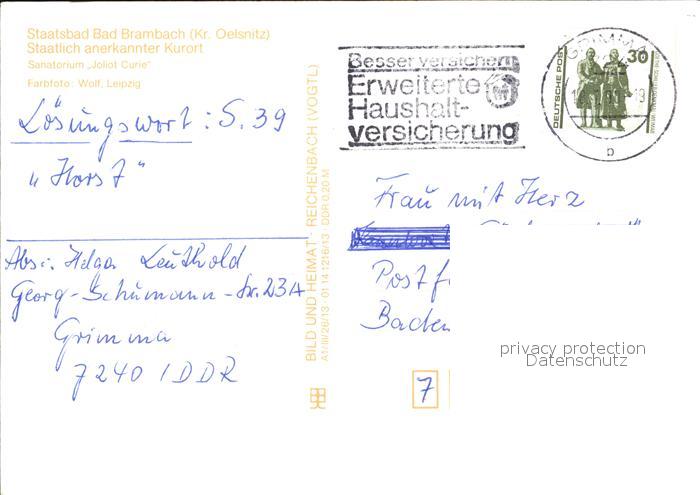 Staatsbad Bad Brambach (Kr. Oelsnitz)
Staatlich anerkannter Kurort
Sanatorium „Joliot Curie"
Farbfoto: Wolf, Leipzig
Lösungswort: S. 39
„Horst"
Abs.: Helga Leuthold
Georg-Schumann-Str. 23A
Grimma
7240 / DDR
BILD UND HEIMAT · REICHENBACH (VOGTL)
A1/III/26/13 · 01 14 1216/13 · DDR 0,20 M
Besser versichern
Erweiterte
Haushalt-
versicherung
GRIMMA
b
DEUTSCHE POST
30
Frau mit Herz
Postf
Baden
7
privacy protection
Datenschutz